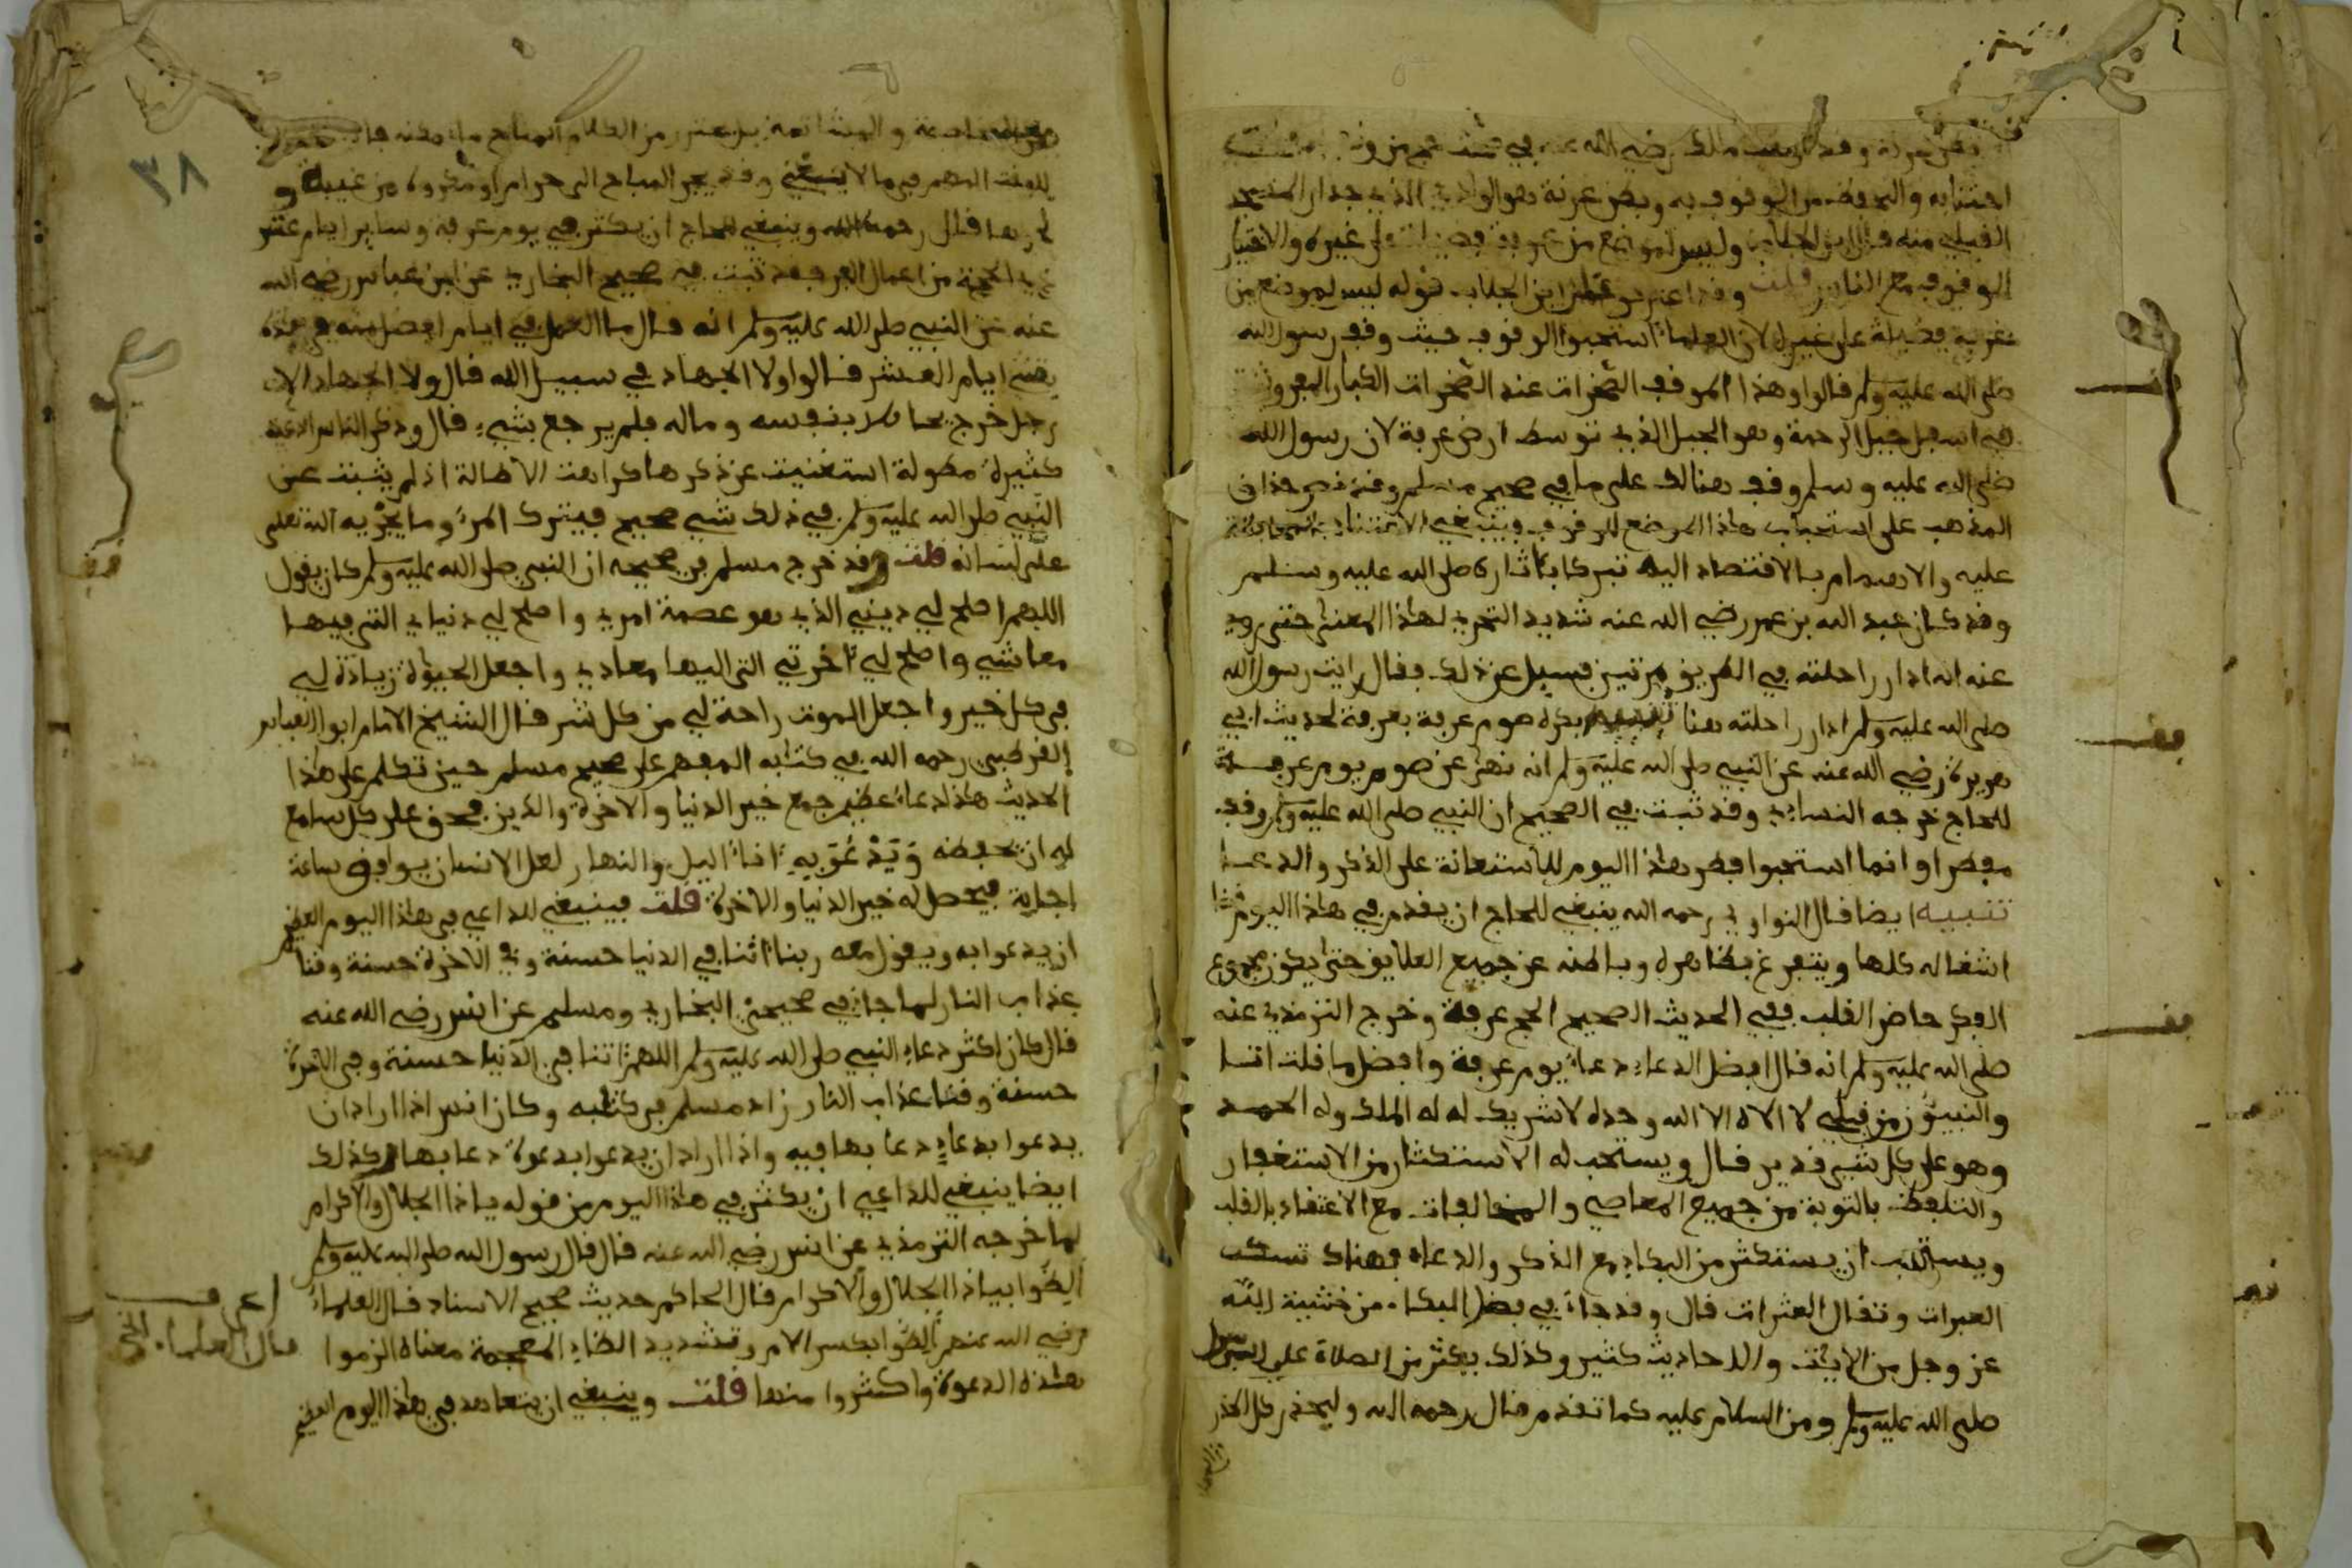 اجتنابه والتحفظ من الوقوف به وبطن عرنة هو الوادي الذي جدار المسجد
القبلي منه قال ابن الجلاب وليس لموضع من عرفة فضيلة على غيره والاختيار
الوقوف مع الناس قلت وقد اعترض على ابن الجلاب قوله ليس لموضع من
عرفة فضيلة على غيره لان العلماء استحبوا الوقوف حيث وقف رسول الله
صلى الله عليه وسلم قالوا وهذا الموقف الصخرات عند الصخرات الكبار المفروشة
في اسفل جبل الرحمة وهو الجبل الذي توسط ارض عرفة لان رسول الله
صلى الله عليه وسلم وقف هنالك على ما في صحيح مسلم وقد نص حذاق
المذهب على استحباب هاذا الموضع للوقوف وينبغي الاعتناء بالمحافظة
عليه والاهتمام بالاقتصاد اليه تبركا باثاره صلى الله عليه وسلم
وقد كان عبد الله بن عمر رضي الله عنه شديد التحري لهاذا المعنى حتى روي
عنه انه ادار راحلته في الطريق مرتين فسيل عن ذلك فقال رايت رسول الله
صلى الله عليه وسلم ادار راحلته هنا تنبيه يكره صوم عرفة بعرفة لحديث ابي
هريرة رضي الله عنه عن النبي صلى الله عليه وسلم انه نهى عن صوم يوم عرفة
للحاج خرجه النساءي وقد ثبت في الصحيح ان النبي صلى الله عليه وسلم وقف
مفطرا وانما استحبوا فطر هاذا اليوم للاستعانة على الذكر والدعا
تنبيه ايضا قال النواوي رحمه الله ينبغي للحاج ان يقدم في هاذا اليوم
اشغاله كلها ويتفرغ بظاهره وباطنه عن جميع العلايق حتى يكون مجموع
الفكر حاضر القلب ففي الحديث الصحيح الحج عرفة وخرج الترمذي عنه
صلى الله عليه وسلم انه قال افضل الدعاء دعاء يوم عرفة وافضل ما قلت انا
والنبيؤن من قبلي لا الاه الا الله وحده لا شريك له له الملك وله الحمد
وهو على كل شيء قدير قال ويستحب له الاستكثار من الاستغفار
والتلفظ بالتوبة من جميع المعاصي والمخالفات مع الاعتقاد بالقلب
ويستحب ان يستكثر من البكاء مع الذكر والدعاء فهناك تسكب
العبرات وتقال العثرات قال وقد جاء في فضل البكاء من خشية الله
عز وجل من الايات والاحاديث كثير وكذلك يكثر من الصلاة على الرسول
صلى الله عليه وسلم ومن السلام عليه كما تقدم قال رحمه الله وليحذر كل الحذر
من المخاصمة والمشاتمة بل يحترز من الكلام المباح ما امكنه فانه تضييع
للوقت المهم فيما لا ينبغي وقد يجر المباح الى حرام او مكروه من غيبة و
نحوها قال رحمه الله وينبغي للحاج ان يكثر في يوم عرفة وساير ايام عشر
ذي الحجة من اعمال البر فقد ثبت في صحيح البخاري عن ابن عباس رضي الله
عنه عن النبي صلى الله عليه وسلم انه قال ما العمل في ايام افضل منه في هذه
يعني ايام العشر قالوا ولا الجهاد في سبيل الله قال ولا الجهاد الا
رجل خرج يخاطر بنفسه وماله فلم يرجع بشيء قال وذكر الناس ادعية
كثيرة مطولة استغنيت عن ذكرها كراهت الاطالة اذ لم يثبت عن
النبي صلى الله عليه وسلم في ذلك شيء صحيح فيترك المرء وما يجزيه الله تعلى
على لسانه قلت وقد خرج مسلم في صحيحه ان النبي صلى الله عليه وسلم كان يقول
اللهم اصلح لي ديني الذي هو عصمة امري واصلح لي دنياي التي فيها
معاشي واصلح لي ءاخرتي التي اليها معادي واجعل الحيوة زيادة لي
في كل خير واجعل الموت راحة لي من كل شر قال الشيخ الامام ابو العباس
القرطبي رحمه الله في كتابه المفهم على صحيح مسلم حين تكلم على هاذا
الحديث هاذا دعاء عظيم جمع خير الدنيا والاخرة والدين فحق على كل سامع
له ان يحفظه ويدعو به ءاناء اليل والنهار لعل الانسان يوافق ساعة
اجابة فيحصل له خير الدنيا والاخرة قلت فينبغي للداعي في هاذا اليوم العظيم
ان يدعوا به ويقول معه ربنا ءاتنا في الدنيا حسنة وفي الاخرة حسنة وقنا
عذاب النار لما جاء في صحيحي البخاري ومسلم عن انس رضي الله عنه
قال كان اكثر دعاء النبي صلى الله عليه وسلم اللهم ءاتنا في الدنيا حسنة وفي الاخرة
حسنة وقنا عذاب النار زاد مسلم في كتابه وكان انس اذا اراد ان
يدعوا بدعاء دعا بها فيه واذا اراد ان يدعوا بدعوة دعا بها وكذلك
ايضا ينبغي للداعي ان يكثر في هاذا اليوم من قوله ياذا الجلال والاكرام
لما خرجه الترمذي عن انس رضي الله عنه قال قال رسول الله صلى الله عليه وسلم
الظوا بياذا الجلال والاكرام قال الحاكم حديث صحيح الاسناد قال العلماء
رضي الله عنهم الظوا بكسر اللام وتشديد الظاء المعجمة معناه الزموا
هاذه الدعوة واكثروا منها قلت وينبغي ان يتعاهد في هاذا اليوم العظيم
قال العلماء الخ
٣٨